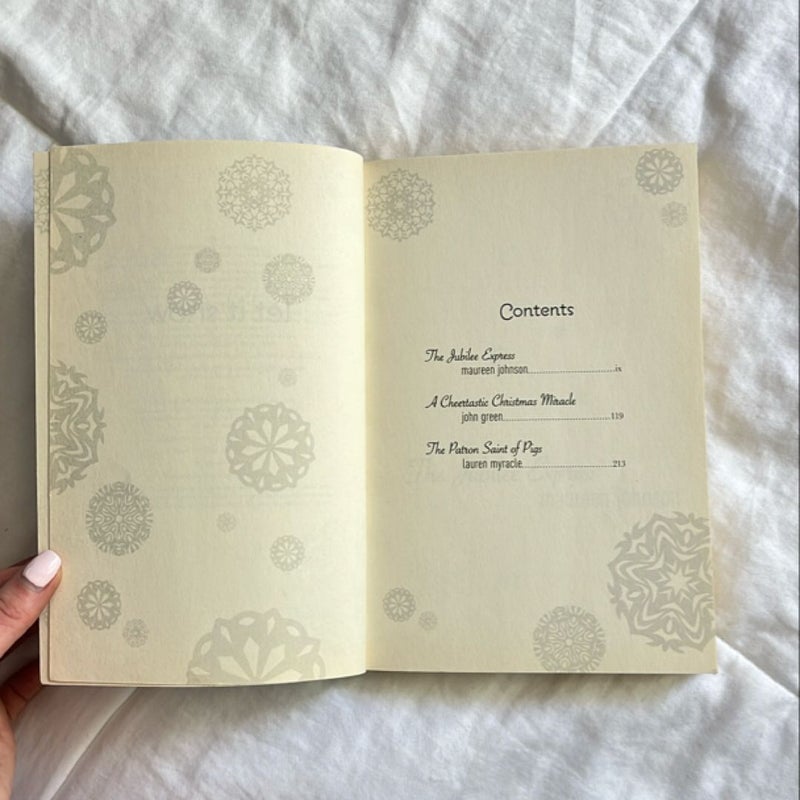 Contents
The Jubilee Express
maureen johnson........................ix
A Cheertastic Christmas Miracle
john green..............................119
The Patron Saint of Pigs
lauren myracle........................213